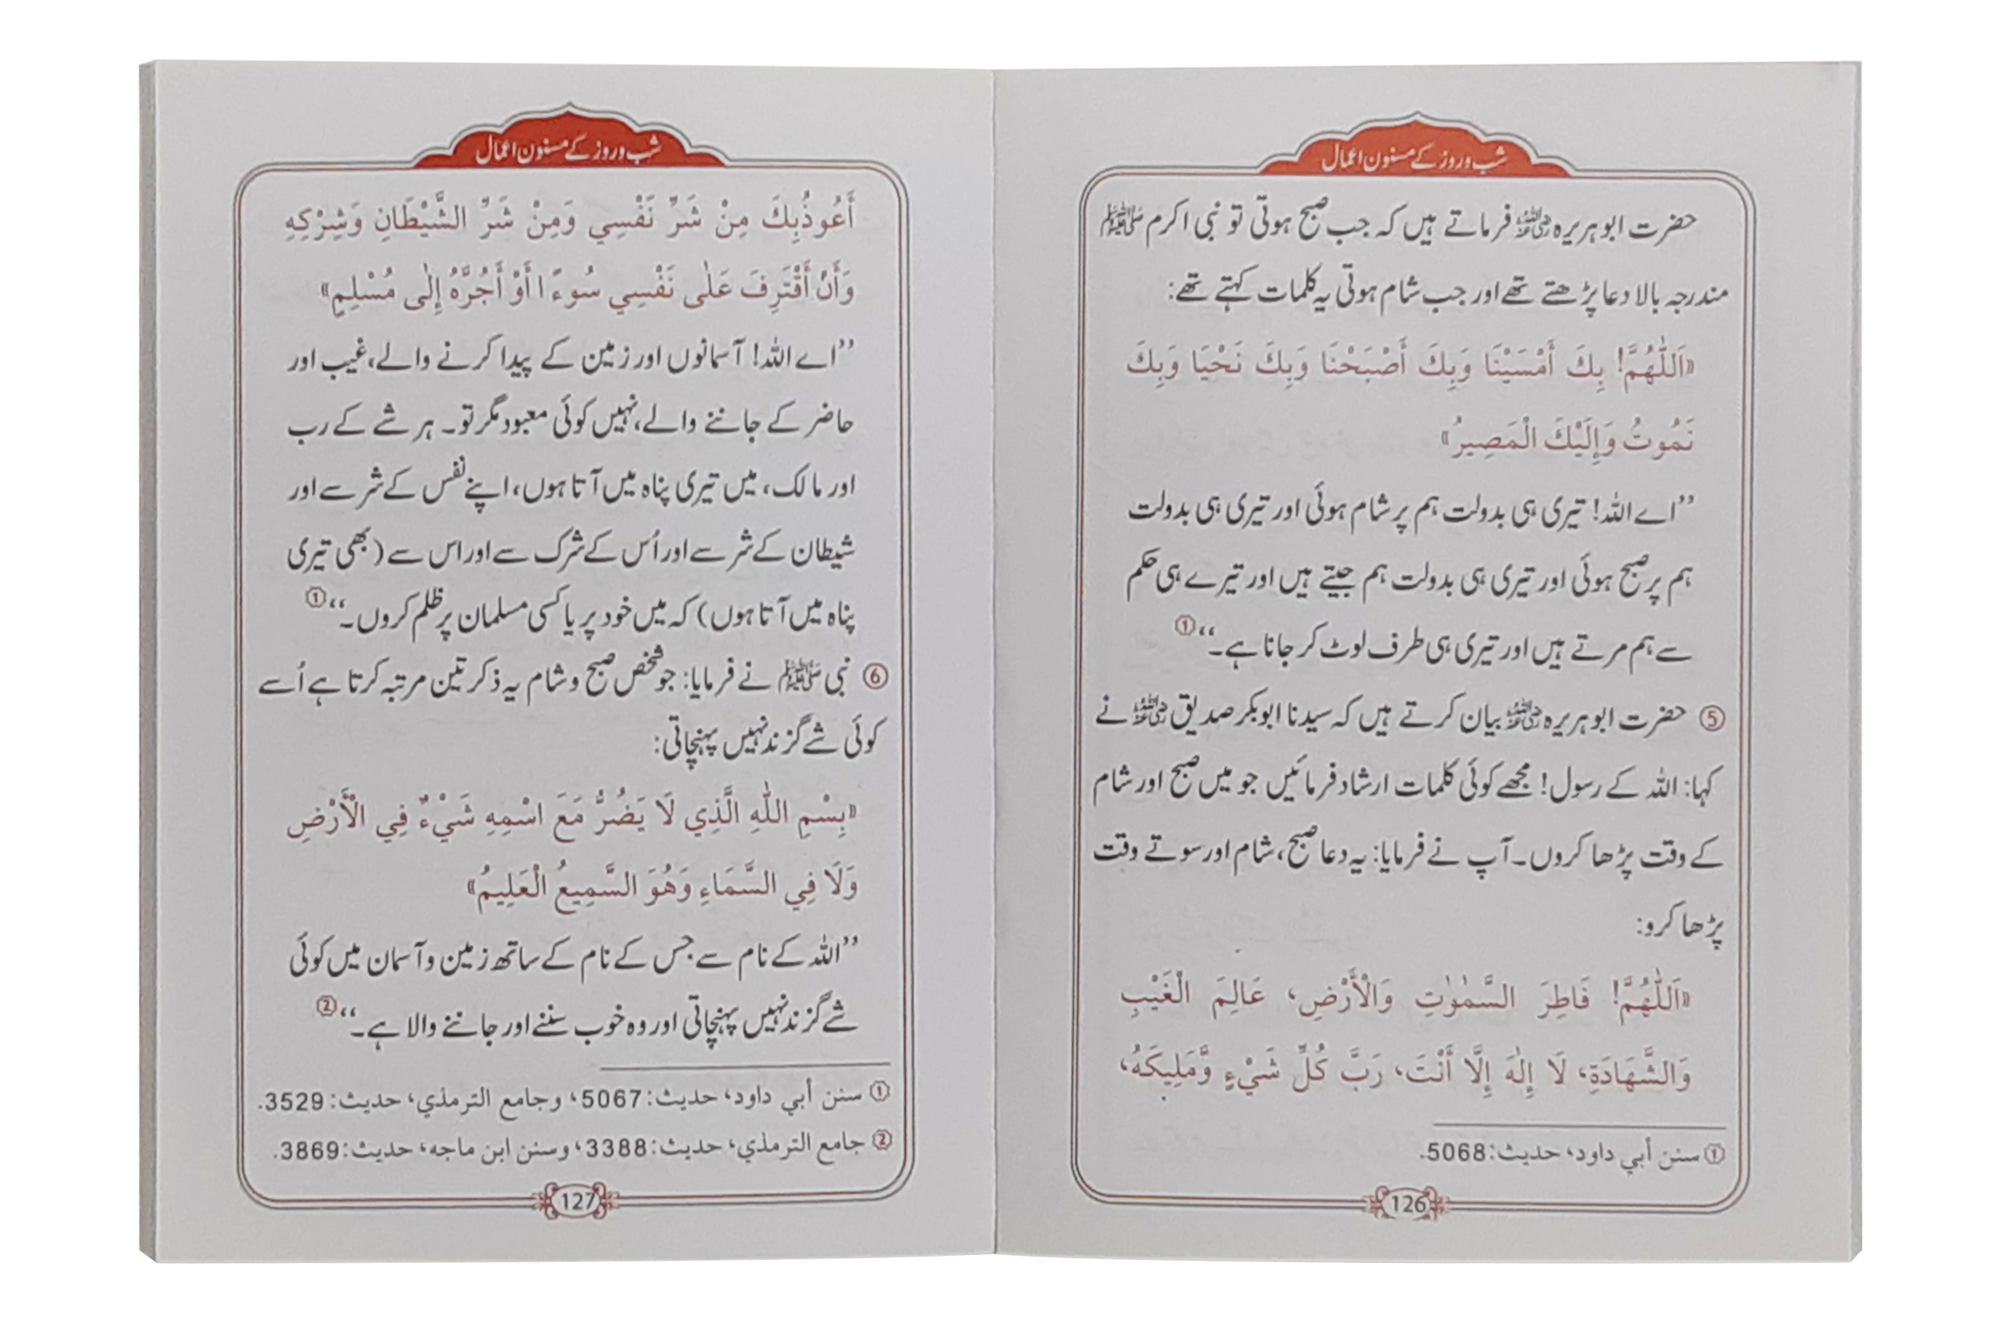 شب و روز کے مسنون اعمال
حضرت ابوہریرہ رضی اللہ عنہ فرماتے ہیں کہ جب صبح ہوتی تو نبی اکرم ﷺ
مندرجہ بالا دعا پڑھتے تھے اور جب شام ہوتی یہ کلمات کہتے تھے:
«اَللّٰهُمَّ! بِكَ أَمْسَيْنَا وَبِكَ أَصْبَحْنَا وَبِكَ نَحْيَا وَبِكَ
نَمُوتُ وَإِلَيْكَ الْمَصِيرُ»
”اے اللہ! تیری ہی بدولت ہم پر شام ہوئی اور تیری ہی بدولت
ہم پر صبح ہوئی اور تیری ہی بدولت ہم جیتے ہیں اور تیرے ہی حکم
سے ہم مرتے ہیں اور تیری ہی طرف لوٹ کر جانا ہے۔“ ①
⑤ حضرت ابوہریرہ رضی اللہ عنہ بیان کرتے ہیں کہ سیدنا ابوبکر صدیق رضی اللہ عنہ نے
کہا: اللہ کے رسول! مجھے کوئی کلمات ارشاد فرمائیں جو میں صبح اور شام
کے وقت پڑھا کروں۔ آپ نے فرمایا: یہ دعا صبح، شام اور سوتے وقت
پڑھا کرو:
«اَللّٰهُمَّ! فَاطِرَ السَّمٰوٰتِ وَالْأَرْضِ، عَالِمَ الْغَيْبِ
وَالشَّهَادَةِ، لَا إِلٰهَ إِلَّا أَنْتَ، رَبَّ كُلِّ شَيْءٍ وَّمَلِيكَهُ،
① سنن أبي داود، حديث: 5068.
126
شب و روز کے مسنون اعمال
أَعُوذُبِكَ مِنْ شَرِّ نَفْسِي وَمِنْ شَرِّ الشَّيْطَانِ وَشِرْكِهِ
وَأَنْ أَقْتَرِفَ عَلٰى نَفْسِي سُوءًا أَوْ أَجُرَّهُ إِلٰى مُسْلِمٍ»
”اے اللہ! آسمانوں اور زمین کے پیدا کرنے والے، غیب اور
حاضر کے جاننے والے، نہیں کوئی معبود مگر تو۔ ہر شے کے رب
اور مالک، میں تیری پناہ میں آتا ہوں، اپنے نفس کے شر سے اور
شیطان کے شر سے اور اُس کے شرک سے اور اس سے (بھی تیری
پناہ میں آتا ہوں) کہ میں خود پر یا کسی مسلمان پر ظلم کروں۔“ ①
⑥ نبی ﷺ نے فرمایا: جو شخص صبح و شام یہ ذکر تین مرتبہ کرتا ہے اُسے
کوئی شے گزند نہیں پہنچاتی:
«بِسْمِ اللّٰهِ الَّذِي لَا يَضُرُّ مَعَ اسْمِهِ شَيْءٌ فِي الْأَرْضِ
وَلَا فِي السَّمَاءِ وَهُوَ السَّمِيعُ الْعَلِيمُ»
”اللہ کے نام سے جس کے نام کے ساتھ زمین و آسمان میں کوئی
شے گزند نہیں پہنچاتی اور وہ خوب سننے اور جاننے والا ہے۔“ ②
① سنن أبي داود، حديث: 5067، وجامع الترمذي، حديث: 3529.
② جامع الترمذي، حديث: 3388، وسنن ابن ماجه، حديث: 3869.
127